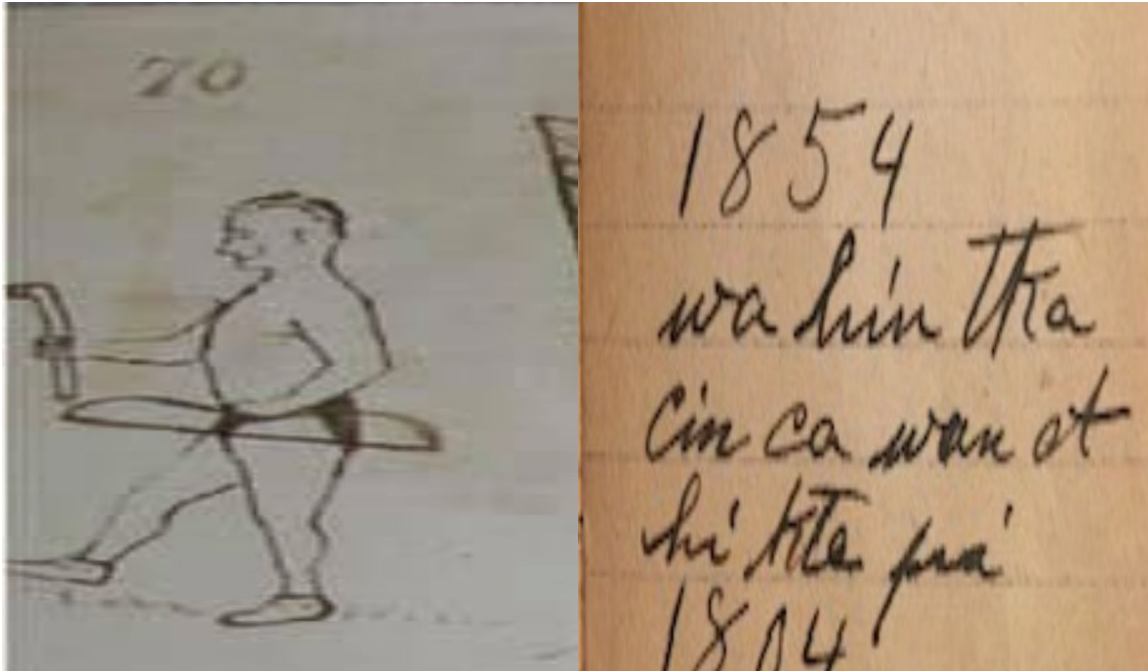 70
1854
wa hin tka
cin ca wan ot
hi kte pi